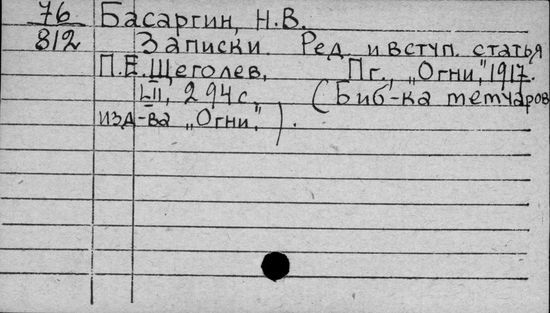 76 Басаргин, Н.В.
812 Записки. Ред. и вступ. статья
П.Е. Щеголев, Пг., „Огни", 1917.
LII, 294 с. (Биб-ка мемуаров
изд-ва „Огни",).